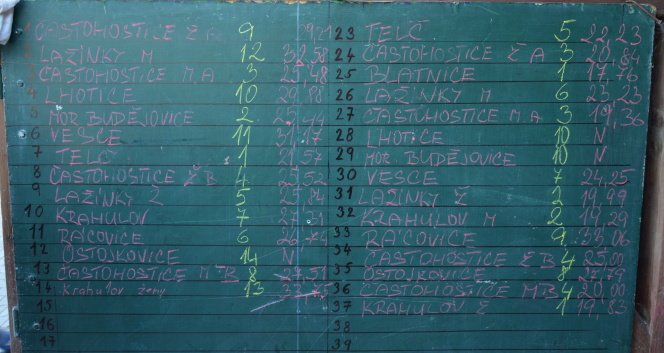 1 ČASTOHOSTICE Ž A 9 29,21
2 LAŽÍNKY M 12 32,58
3 ČASTOHOSTICE M.A 3 25,48
4 LHOTICE 10 29,98
5 MOR BUDĚJOVICE 2 44
6 VESCE 11 31,17
7 TELČ 1 21,57
8 ČASTOHOSTICE Ž B 4 25,52
9 LAŽÍNKY Ž 5 25,84
10 KRAHULOV 7
11 RAČOVICE 6 26,74
12 OSTOJKOVICE 14 N
13 ČASTOHOSTICE M B 8 27,51
14 Krahulov ženy 13
15
16
17
23 TELČ 5 22,23
24 ČASTOHOSTICE Ž A 3 20,84
25 BLATNICE 1 17,76
26 LAŽÍNKY M 6 23,23
27 ČASTOHOSTICE M A 3 19,36
28 LHOTICE 10 N
29 MOR. BUDĚJOVICE 10 N
30 VESCE 7 24,25
31 LAŽÍNKY Ž 2 19,99
32 KRAHULOV M 2 19,29
33 RAČOVICE 9 33,06
34 ČASTOHOSTICE Ž B 4 25,00
35 OSTOJKOVICE 8 27,79
36 ČASTOHOSTICE M B 4 20,00
37 KRAHULOV Ž 1 19,83
38
39